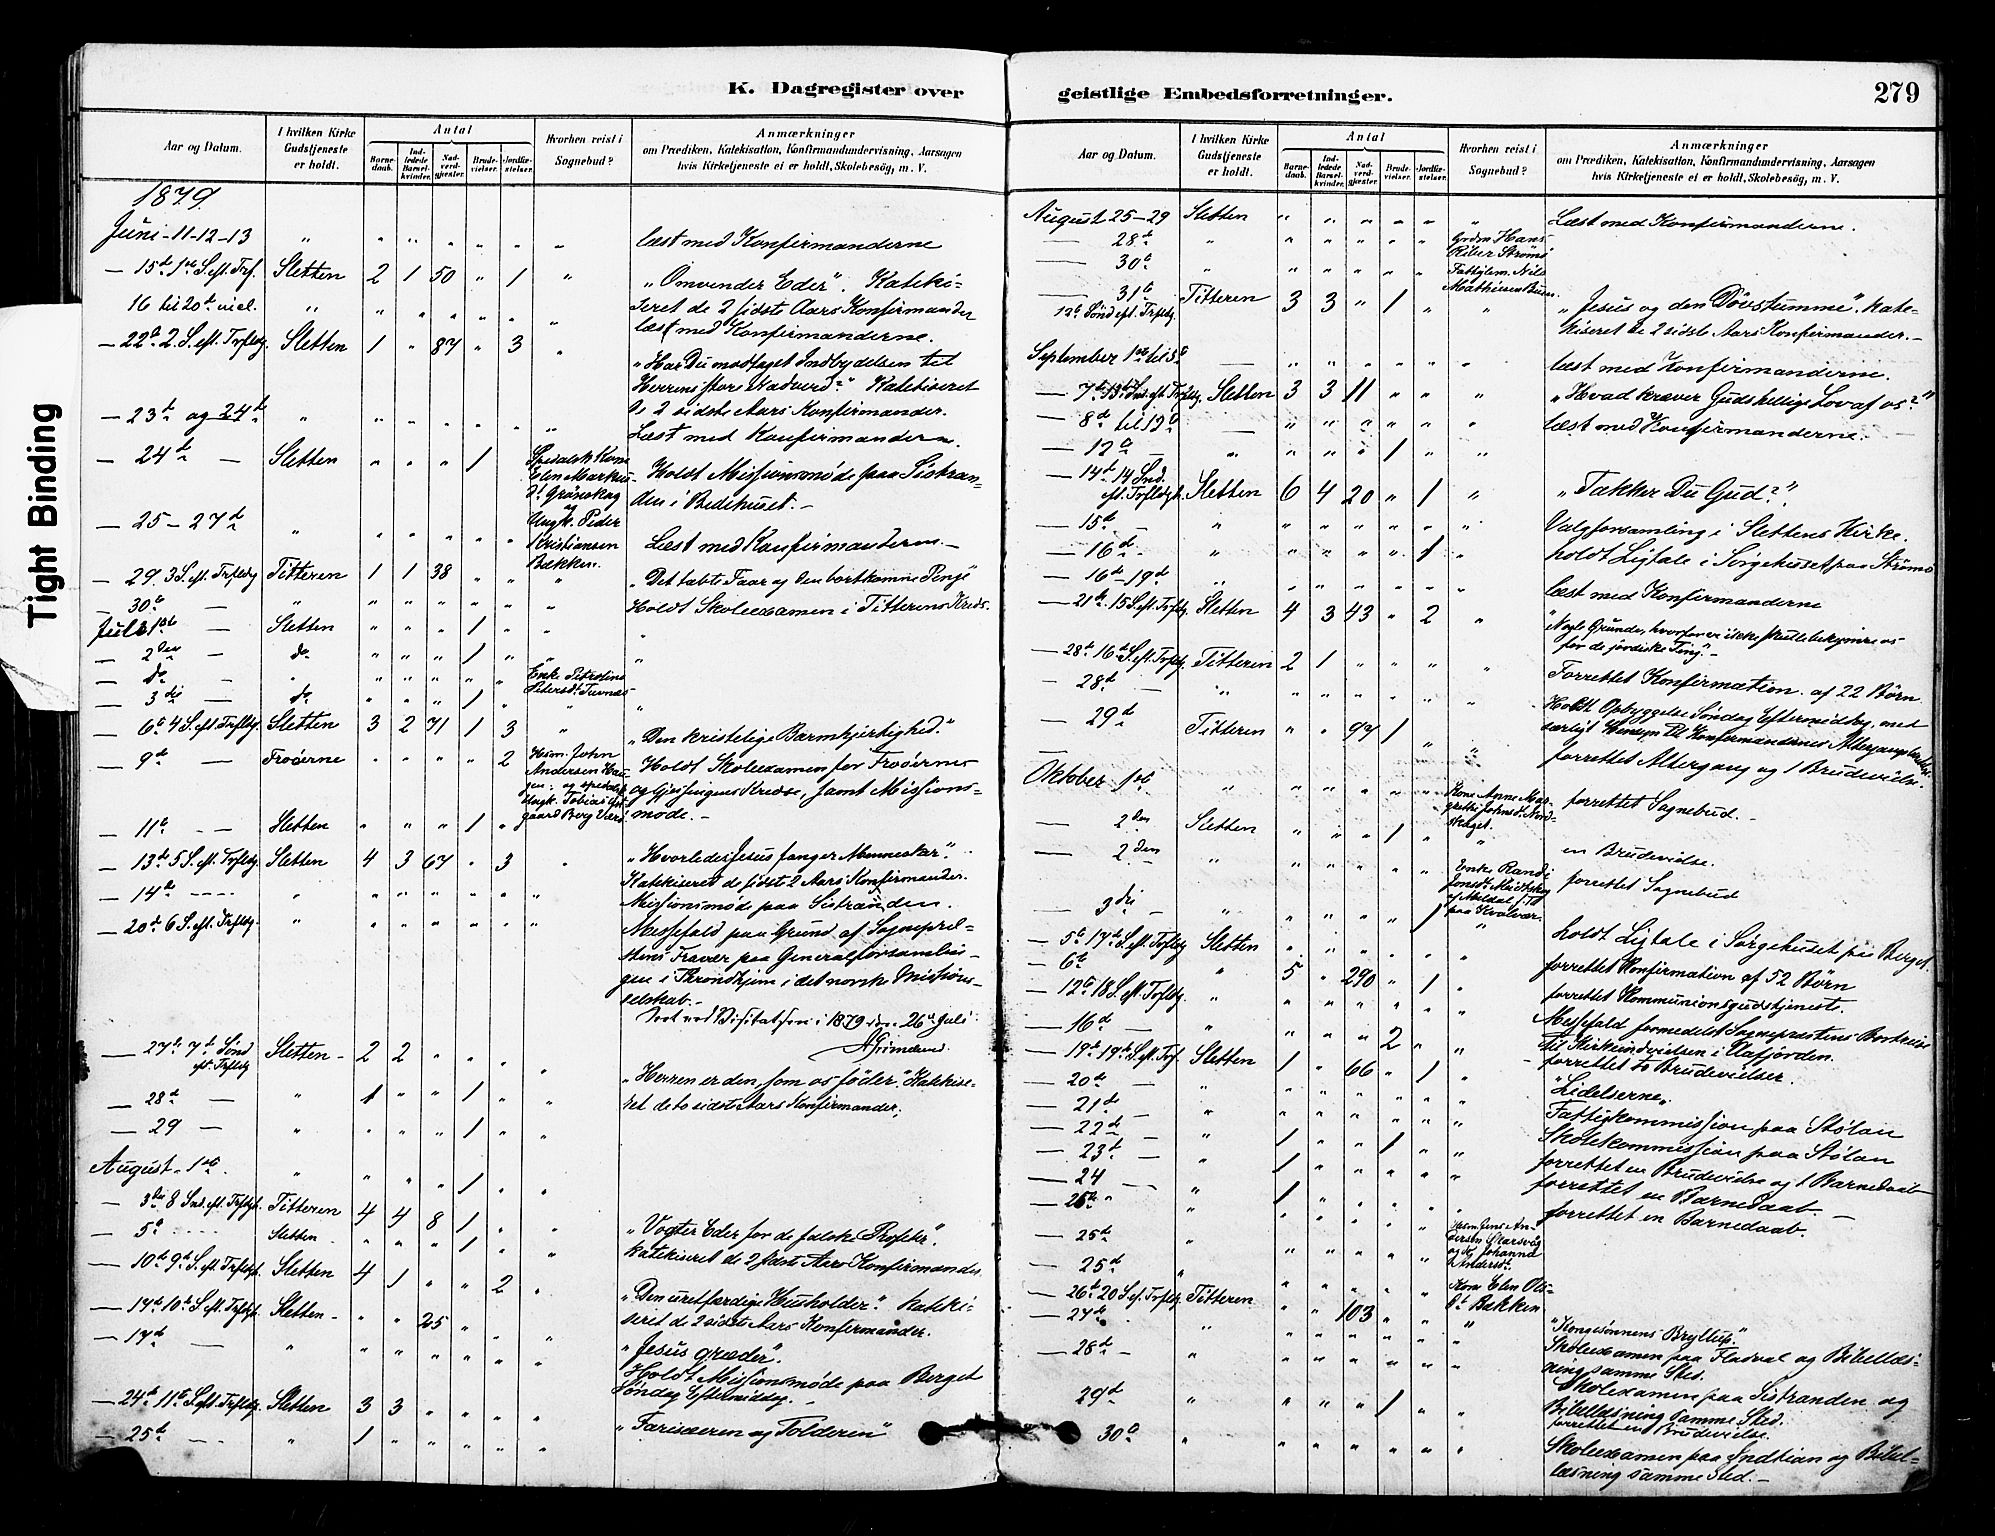 K. Dagregister over
Aar og Datum. I hvilken Kirke Gudstjeneste er holdt. Antal Barnedaab. Indledede Barselkvinder. Nadverdgjester. Brudevielser. Jordfæstelser. Hvorhen reist i Sognebud? Anmærkninger om Prædiken, Katekisation, Konfirmandundervisning, Aarsagen hvis Kirketjeneste ei er holdt, Skolebesög, m. V.
1879
Juni 11-12-13 " " " " " " " læst med Konfirmanderne
— 15de 1ste S. eft. Trf. Sletten 2 1 50 " 1 " „Omvender Eder". Kateki-
16 til 20de incl. " " " " " " " seret de 2 sidste Aars Konfirmander
læst med Konfirmanderne.
— 22de 2. S. eft. Trfldg. Sletten 1 " 87 " 3 " „Har Du modtaget Indbydelsen til
Herrens store Nadverd?" Katekiseret
de 2 sidste Aars Konfirmander.
— 23de og 24de " " " " " " " Læst med Konfirmanderne.
— 24de — Sletten " " " 1 " Spedalsk Kone Elen Markusd. Grönskag og Ungk. Peder Kristiansen Bakken. Holdt Missionsmøde paa Sistran-
den i Bedehuset. —
— 25-27de " " " " " " Læst med Konfirmanderne. —
— 29. 3 S. eft. Trfldg Titteren 1 1 38 " " " „Det tabte Faar og den bortkomne Penge
— 30te — " " " " " " " Holdt Skoleexamen i Titterens Kreds.
Juli 1ste — Sletten " " " 1 " " "
— 2den — do " " " 1 " " "
— do " " " " " " Enke Petroline Petersd. Tuvnæs
— 3die — do " " " 1 " " "
— 6te 4 S. eft Trfldg. Sletten 3 2 71 1 3 " „Den kristelige Barmhjertighed."
— 9de — Froöerne " " " " 2 Husm. John Andersen Haugen og spedalsk Ungk. Tobias Værö Holdt Skoleexamen for Froöernes
og Gjæsingens Kredse, samt Missions-
møde. —
— 11te — Sletten " " " 1 "
— 13de 5 S. eft. Trfldg. Sletten 4 3 67 " 3 " „Hvorledes Jesus fanger Mennesker".
Katekiseret de sidste 2 Aars Konfirmander.
— 14de " " " " " " " Missionsmøde paa Sistranden.
— 20de 6 S. eft. Trfldg. " " " " " " " Messefald paa Grund af Sognepræ-
stens Fravær paa Generalforsamlin-
gen i Throndhjem i det norske Missions-
selskab. —
Seet ved Visitatsen i 1879 den 26de Juli
A Grimelund.
— 27de 7de Sönd eft. Trfldg Sletten 2 2 " " " " „Herren er den, som os föder". Katekise-
ret de to sidste Aars Konfirmander.
— 28de — " 1 " " 1 " "
— 29 — " " " " 1 " "
August 1ste " " " " 1 " "
— 3die 8 Snd. eft. Trfldg. Titteren 4 4 8 1 " " „Vogter Eder for de falske Profeter".
— 5te Sletten " " " 1 " " katekiseret de 2 sidste Aars Konfirmander.
— 10de 9de S. eft. Trfldgf. Sletten 4 1 " " 2 " „Den uretfærdige Husholder". kateki-
seret de 2 sidste Aars Konfirmander.
— 17de 10de S. eft. Trfldgf. Sletten " " 25 " " " „Jesus græder".
— 17de " " " " " " " Holdt Missionsmøde paa Berget
Søndag Eftermiddag. —
— 24de 11te S. eft. Trfldgf. Sletten 3 3 " " " " „Farisæeren og Tolderen"
— 25de " 1 " " " " "
geistlige Embedsforretninger. 279
Aar og Datum. I hvilken Kirke Gudstjeneste er holdt. Antal Barnedaab. Indledede Barselkvinder. Nadverdgjester. Brudevielser. Jordfæstelser. Hvorhen reist i Sognebud? Anmærkninger om Prædiken, Katekisation, Konfirmandundervisning, Aarsagen hvis Kirketjeneste ei er holdt, Skolebesög, m. V.
August 25-29 Sletten " " " " " " Læst med Konfirmanderne.
— 28de " " " " " " Hans Riber Strömö
— 30te " " " " " " Nils Mathisen
— 31te Titteren 3 3 " 1 " " „Jesus og den Døvstumme". kate-
12te Sönd eft. Trfldg. kiseret de 2 sidste Aars Konfirmander. —
September 1ste til 5te — " " " " " " læst med Konfirmanderne.
— 7de 13de Snd. eft Trfldg. Sletten 3 3 11 " " " „Hvad kræver Guds hellige Lov af os?"
— 8de til 12te — " " " " " " læst med Konfirmanderne.
— 12te " " " " 1 " "
— 14de 14 Snd. eft. Trfldg. Sletten 6 4 20 " 1 " „Takker Du Gud?"
— 15de — " " " " " " " Valgforsamling i Slettens Kirke.
— 16de — " " " " " 1 " holdt Ligtale i Sörgehuset paa Strömö
— 16de-19de " " " " " " " læst med Konfirmanderne
— 21de 15 S. eft. Trfldg. Sletten 4 3 43 " 2 " „Nogle Grunde, hvorfor vi ikke skulle bekymre os
for de jordiske Ting". —
— 28de 16de S. eft. Trfldg. Titteren 2 1 " " " " Forrettet Konfirmation af 22 Börn
— 28de — " " " " " " " Holdt Opbyggelse Søndag Eftermiddag, med
særligt Hensyn til Konfirmandernes Altergang
— 29de Titteren " " 97 1 " " forrettet Altergang og 1 Brudevielse.
Oktober 1ste " " " " " " Kone Anne Margrethe Johnsd. Nordskaget. forrettet Sognebud.
— 2den Sletten " " " 1 " " en Brudevielse.
— 2den " " " " " " Enke Randi Jonsd. paa Kvalvær. forrettet Sognebud
— 3die — " " " " " 1 " holdt Ligtale i Sörgehuset paa Berget.
— 5te 17de S. eft. Trfldg Sletten " " " " " " forrettet Konfirmation af 52 Börn
— 6te " 5 " 290 " 1 " forrettet Kommunionsgudstjeneste.
— 12te 18 S. eft. Trfldg. " " " " " " " Messefald formedelst Sognepræstens Bortreise
til Kirkeindvielsen i Aafjorden.
— 16de — " " " " 2 " " forrettet to Brudevielser.
— 19de 19de S. eft. Trf. Sletten 1 " 66 " 1 " „Lidelserne„
— 20de — " " " " " " " Fattigkommission paa Stölan
— 21de — " " " " " " " Skolekommission paa Stölan
— 22de — " 1 " " 1 " " forrettet en Brudevielse og 1 Barnedaab
— 23de — " 1 " " " " " forrettet en Barnedaab —
— 24 — " 1 " " " " " forrettet en Barnedaab.
— 25de " " " " " " Jens Andersen Skarsvåg og Johanna Andersdt.
— 25de " " " " " " Kone Elen Olsdt. Bakken
— 26de 20 S. eft. Trfldg. Titteren " " 103 " " " „Kongesönnens Bryllup."
— 27de " " " " " " " Skoleexamen paa Fladval og Bibellæs-
ning samme Sted.
— 28de — " " " " " " " Skoleexamen paa Sistranden og
Bibellæsning samme Sted.
— 29de " " " " 1 " " forrettet en Brudevielse.
— 30te " " " " " " " Skoleexamen paa Indtian og Bibel-
læsning samme Sted. —
Tight Binding